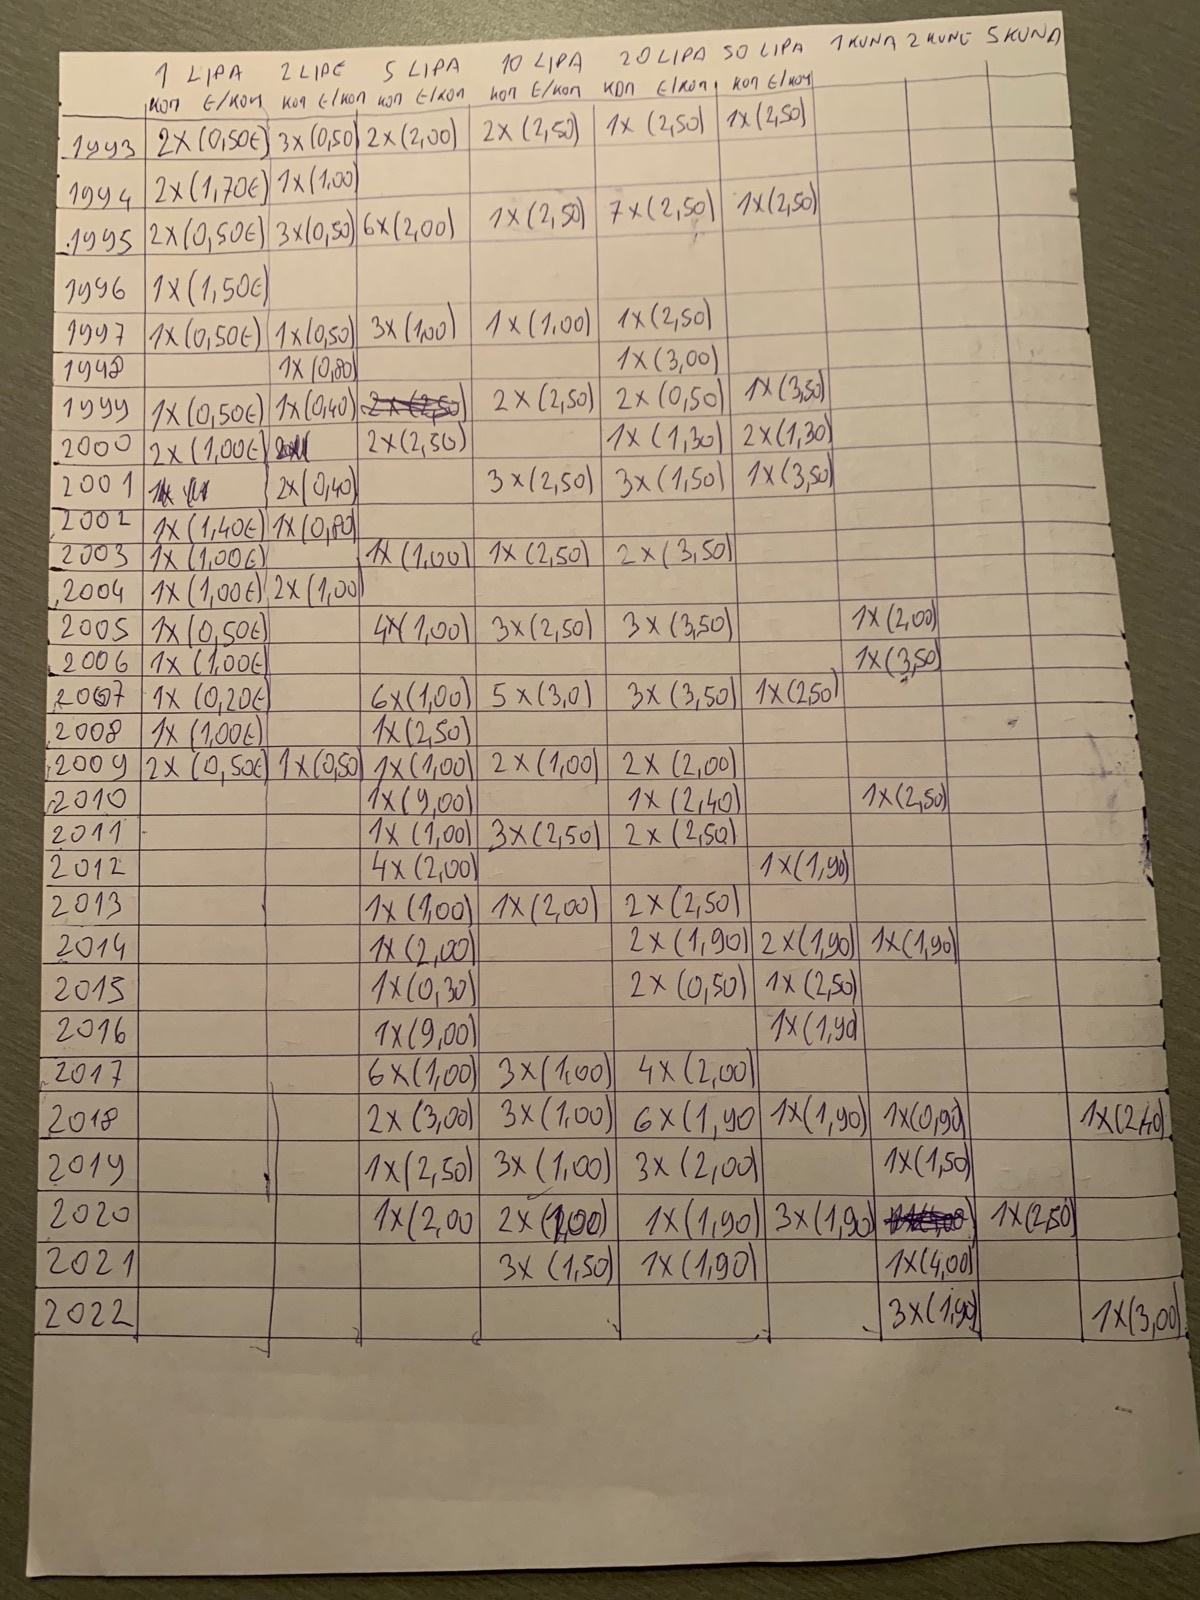 1 LIPA 2 LIPE 5 LIPA 10 LIPA 20 LIPA 50 LIPA 1 KUNA 2 KUNE 5 KUNA
КОП Е/КОП КОП Е/КОП КОП Е/КОП КОП Е/КОП КОП Е/КОП КОП Е/КОП
1993 2x(0,50€) 3x(0,50) 2x(2,00) 2x(2,50) 1x(2,50) 1x(2,50)
1994 2x(1,70€) 1x(1,00)
1995 2x(0,50€) 3x(0,50) 6x(2,00) 1x(2,50) 7x(2,50) 1x(2,50)
1996 1x(1,50€)
1997 1x(0,50€) 1x(0,50) 3x(1,00) 1x(1,00) 1x(2,50)
1998 1x(0,80) 1x(3,00)
1999 1x(0,50€) 1x(0,40) 2x(2,50) 2x(0,50) 1x(3,50)
2000 2x(1,00€) 2x(2,50) 1x(1,30) 2x(1,30)
2001 2x(0,40) 3x(2,50) 3x(1,50) 1x(3,50)
2002 1x(1,40€) 1x(0,80)
2003 1x(1,00€) 1x(1,00) 1x(2,50) 2x(3,50)
2004 1x(1,00€) 2x(1,00)
2005 1x(0,50€) 4x(1,00) 3x(2,50) 3x(3,50) 1x(2,00)
2006 1x(1,00€) 1x(3,50)
2007 1x(0,20€) 6x(1,00) 5x(3,0) 3x(3,50) 1x(2,50)
2008 1x(1,00€) 1x(2,50)
2009 2x(0,50€) 1x(0,50) 1x(1,00) 2x(1,00) 2x(2,00)
2010 1x(9,00) 1x(2,40) 1x(2,50)
2011 1x(1,00) 3x(2,50) 2x(2,50)
2012 4x(2,00) 1x(1,90)
2013 1x(1,00) 1x(2,00) 2x(2,50)
2014 1x(2,00) 2x(1,90) 2x(1,90) 1x(1,90)
2015 1x(0,30) 2x(0,50) 1x(2,50)
2016 1x(9,00) 1x(1,90)
2017 6x(1,00) 3x(1,00) 4x(2,00)
2018 2x(3,00) 3x(1,00) 6x(1,90 1x(1,90) 1x(0,90) 1x(2,40)
2019 1x(2,50) 3x(1,00) 3x(2,00) 1x(1,50)
2020 1x(2,00 2x(1,00) 1x(1,90) 3x(1,90) 1x(2,50)
2021 3x(1,50) 1x(1,90) 1x(4,00)
2022 3x(1,90) 1x(3,00)